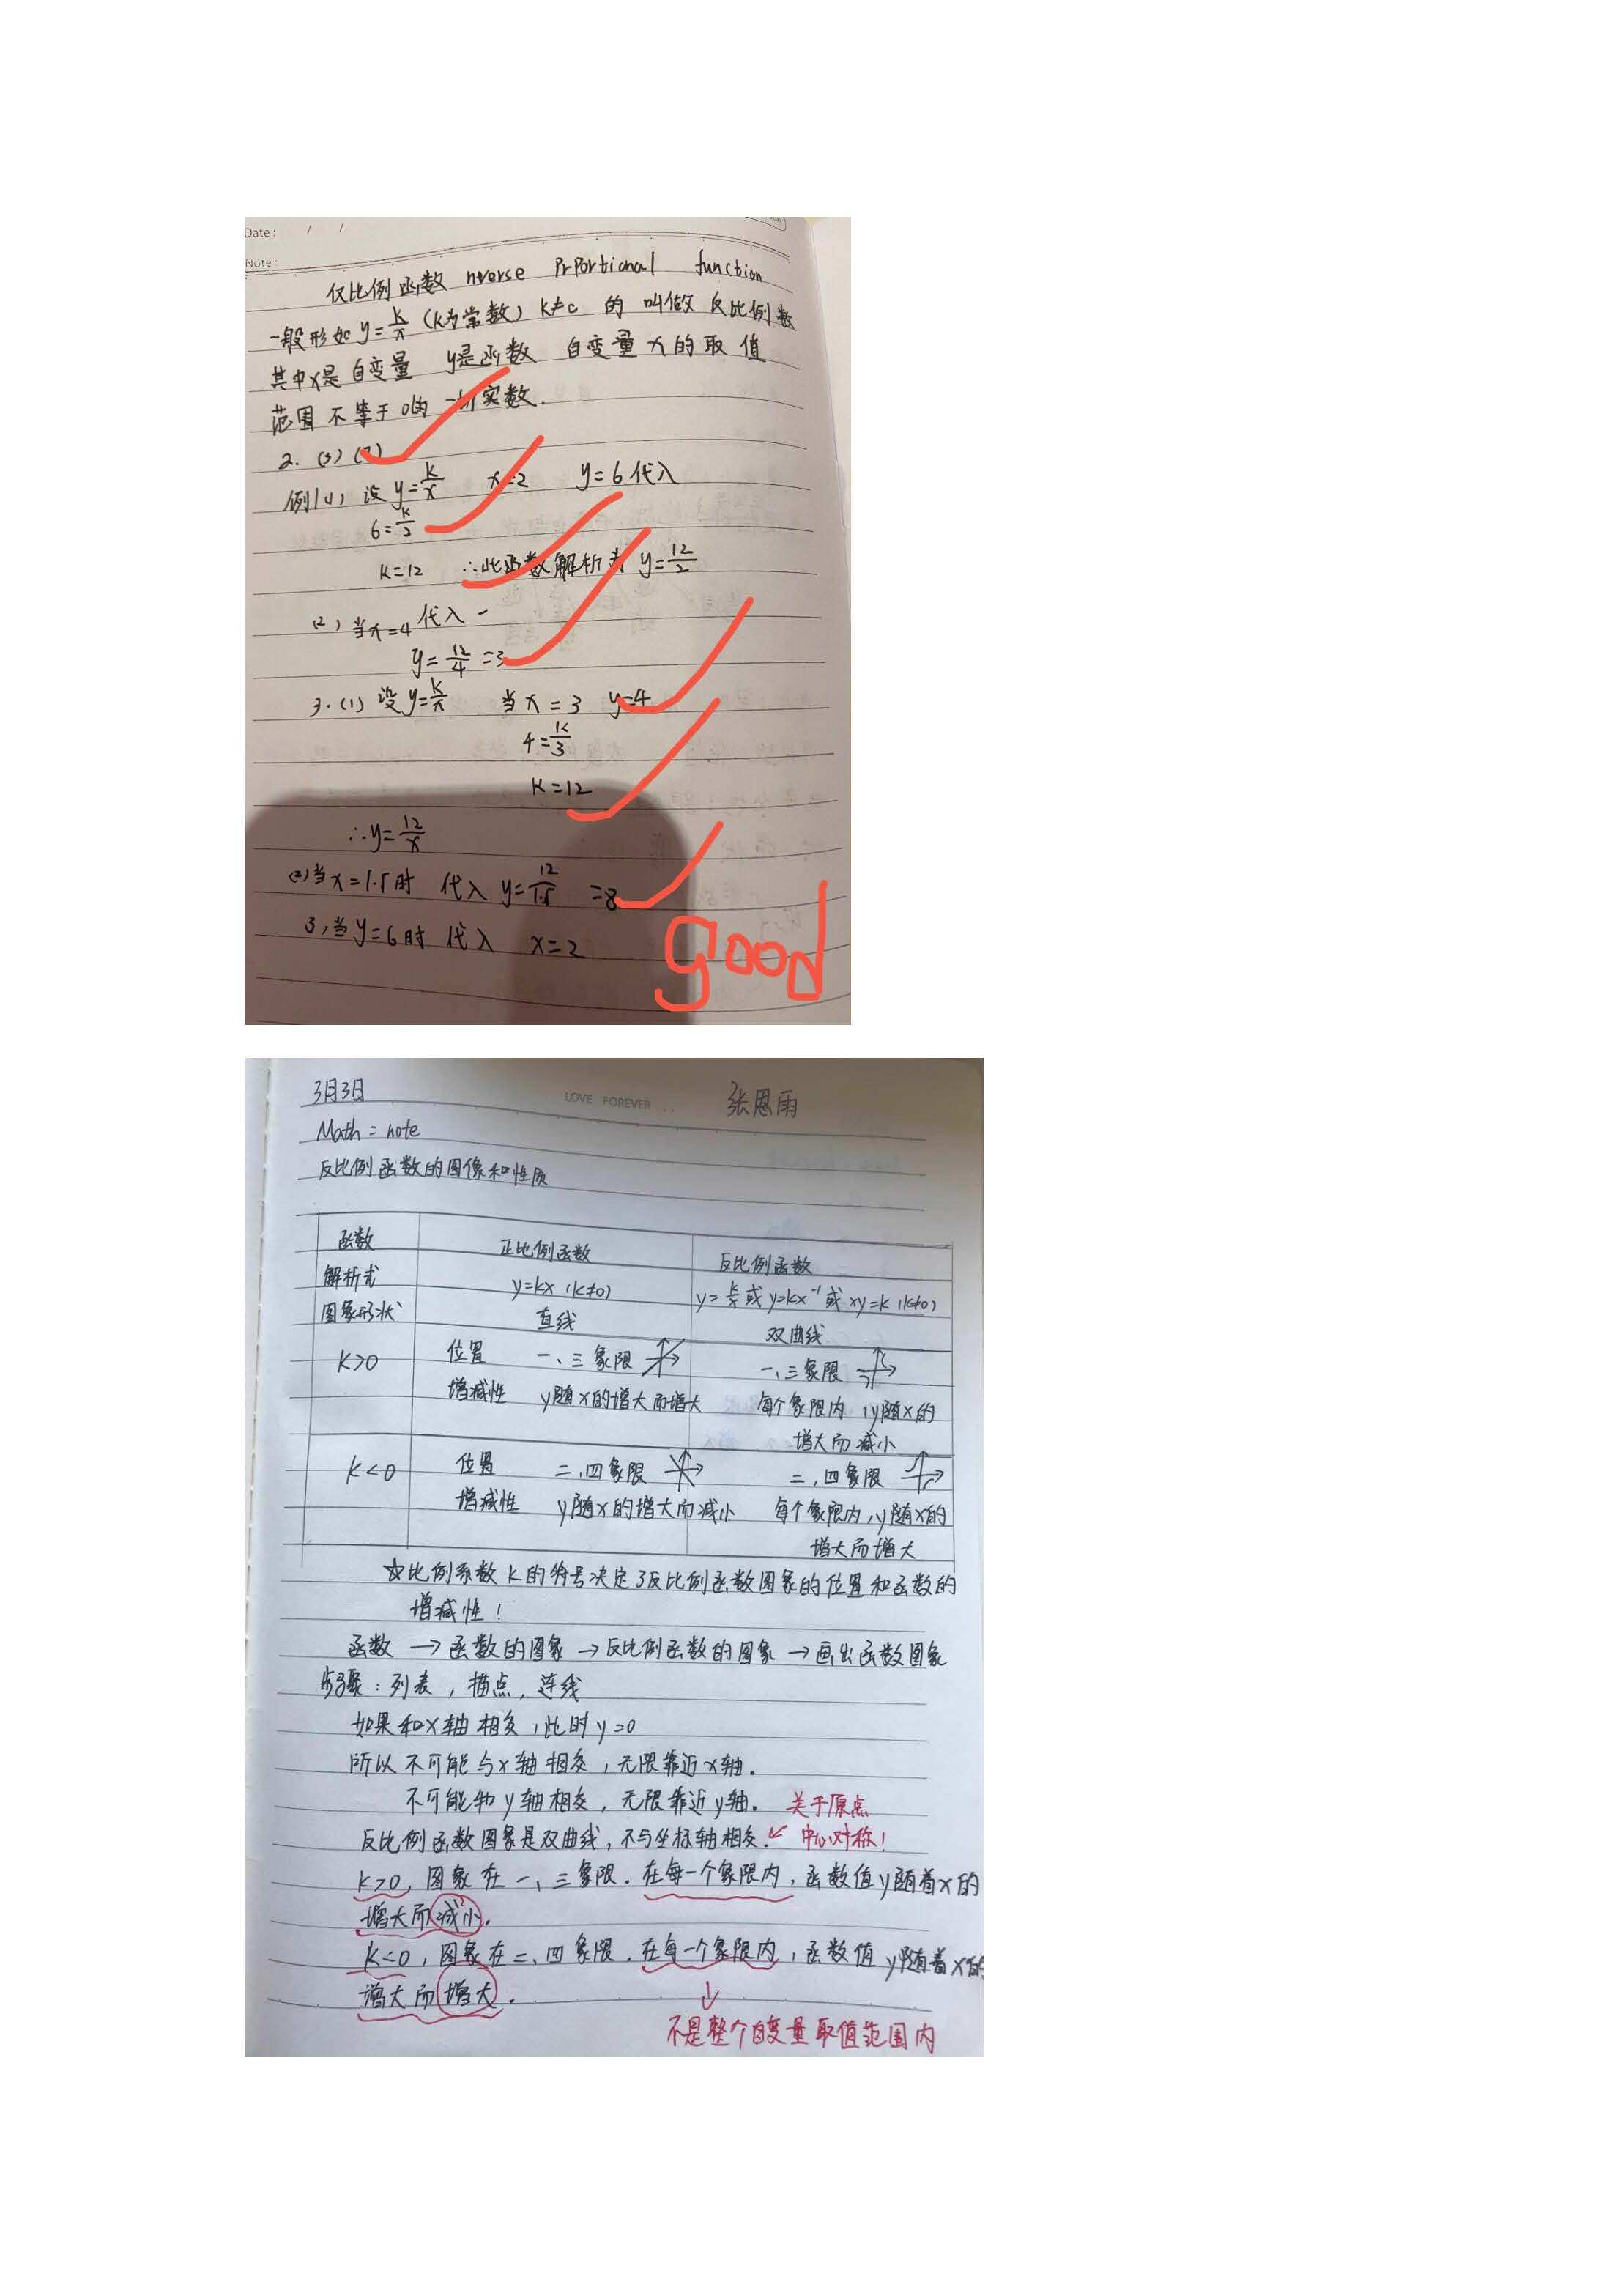 Date: / /
Note:
仅比例函数 nverse PrPortional function
一般形如 y=k/x (k为常数) k≠c 的 叫做 反比例数
其中x是自变量 y是函数 自变量x的取值
范围不等于0的一切实数.
2. (3) (7)
例1(1) 设 y=k/x x=2 y=6代入
6=k/2
k=12 ∴此函数解析为 y=12/2
(2) 当x=4 代入
y=12/4=3
3.(1) 设y=k/x 当x=3 y=4
4=k/3
k=12
∴y=12/x
(2)当x=1.5时 代入 y=12/1.5 =8
3,当y=6时 代入 x=2
good
3月3日 LOVE FOREVER... 张恩雨
Math = note
反比例函数的图像和性质
函数 正比例函数 反比例函数
解析式 y=kx (k≠0) y=k/x或y=kx⁻¹或xy=k (k≠0)
图象形状 直线 双曲线
k>0 位置 一、三象限 一、三象限
增减性 y随x的增大而增大 每个象限内,y随x的
增大而减小
k<0 位置 二、四象限 二、四象限
增减性 y随x的增大而减小 每个象限内,y随x的
增大而增大
☆比例系数k的符号决定了反比例函数图象的位置和函数的
增减性!
函数→函数的图象→反比例函数的图象→画出函数图象
步骤:列表,描点,连线
如果和x轴相交,此时y=0
所以不可能与x轴相交,无限靠近x轴.
不可能和y轴相交,无限靠近y轴. 关于原点
反比例函数图象是双曲线,不与坐标轴相交.↙ 中心对称!
k>0,图象在一、三象限.在每一个象限内,函数值y随着x的
增大而减小.
k<0,图象在二、四象限.在每一个象限内,函数值y随着x的
增大而增大.
↓
不是整个自变量取值范围内